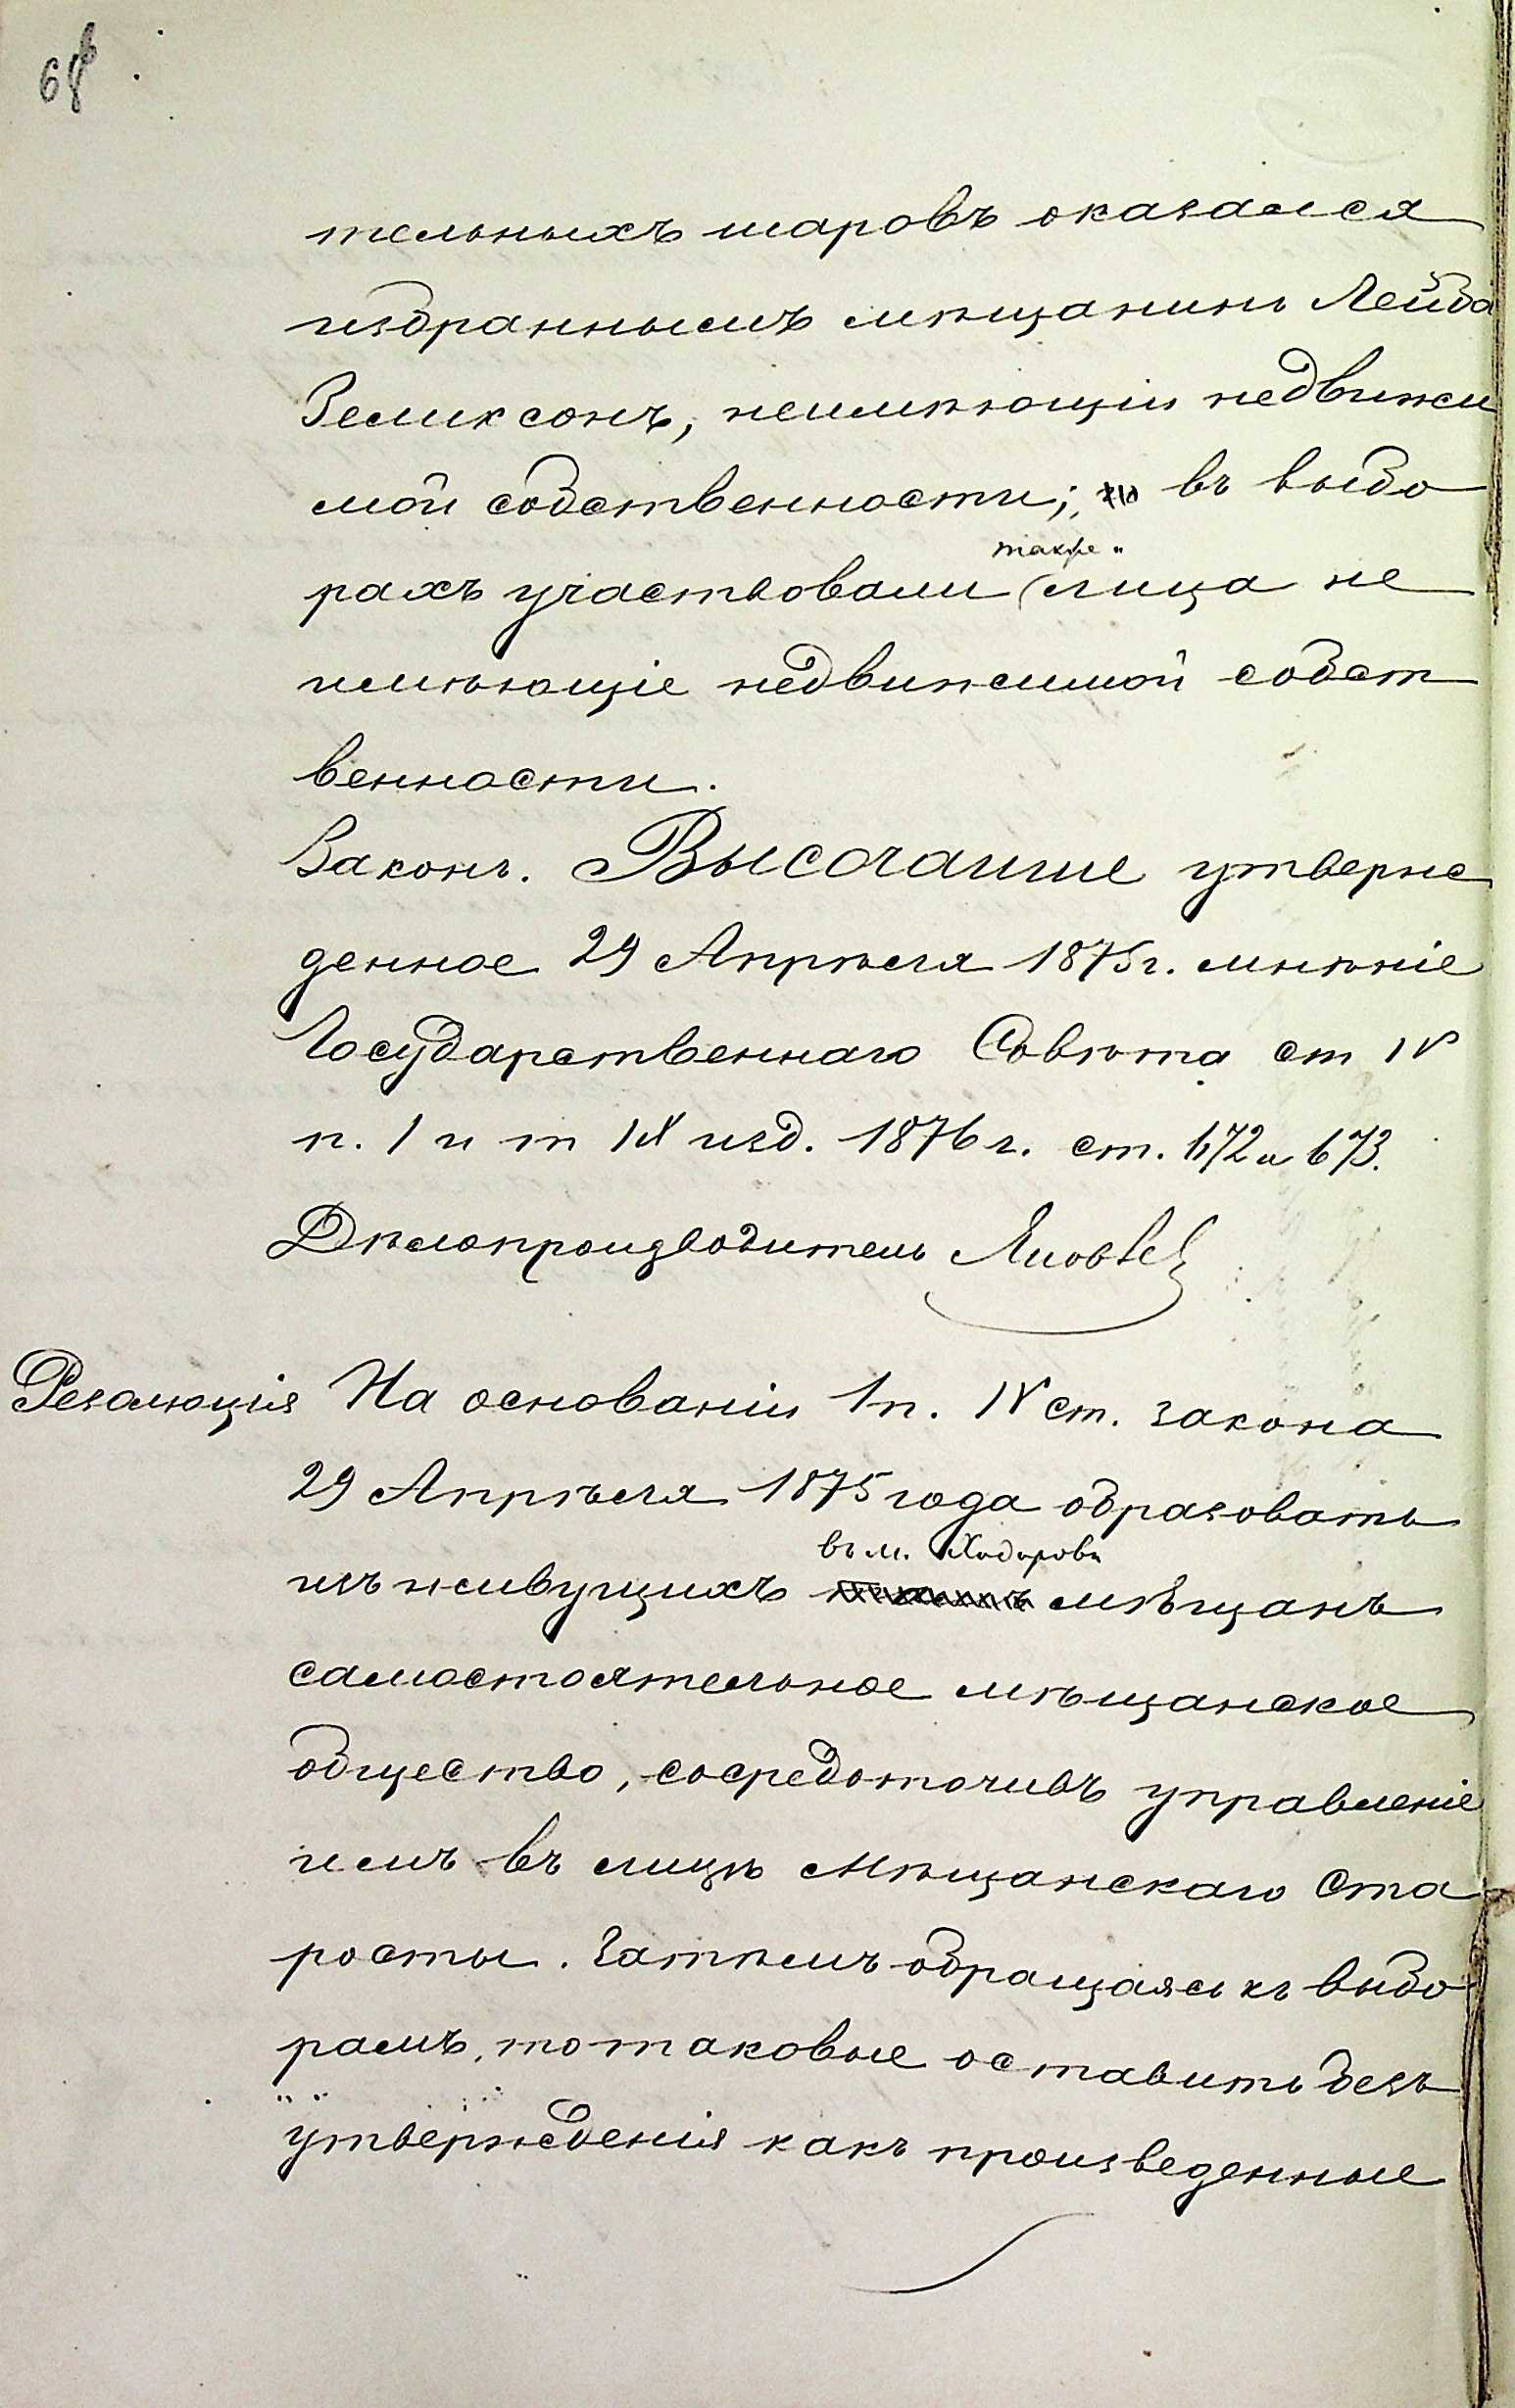 68
тельныхъ шаровъ оказался
избраннымъ мѣщанинъ Лейба
Зеликсонъ, неимѣющій недвижи
мой собственности; въ выбо
также
рахъ участвовали лица не
имѣющіе недвижимой собст
венности.
Законъ. Высочайше утверж
денное 29 Апрѣля 1875 г. мнѣніе
Государственнаго Совѣта ст IV
п. 1 и т IX изд. 1876 г. ст. 672 и 673.
Дѣлопроизводитель
Резолюція На основаніи 1 п. IV ст. закона
29 Апрѣля 1875 года образовать
въ м. Ходоровъ
изъ живущихъ мѣщанъ
самостоятельное мѣщанское
общество, сосредоточивъ управленіе
имъ въ лицѣ Мѣщанскаго Ста
росты. Затѣмъ обращаясь къ выбо
рамъ, то таковые оставить безъ
утвержденія какъ произведенные